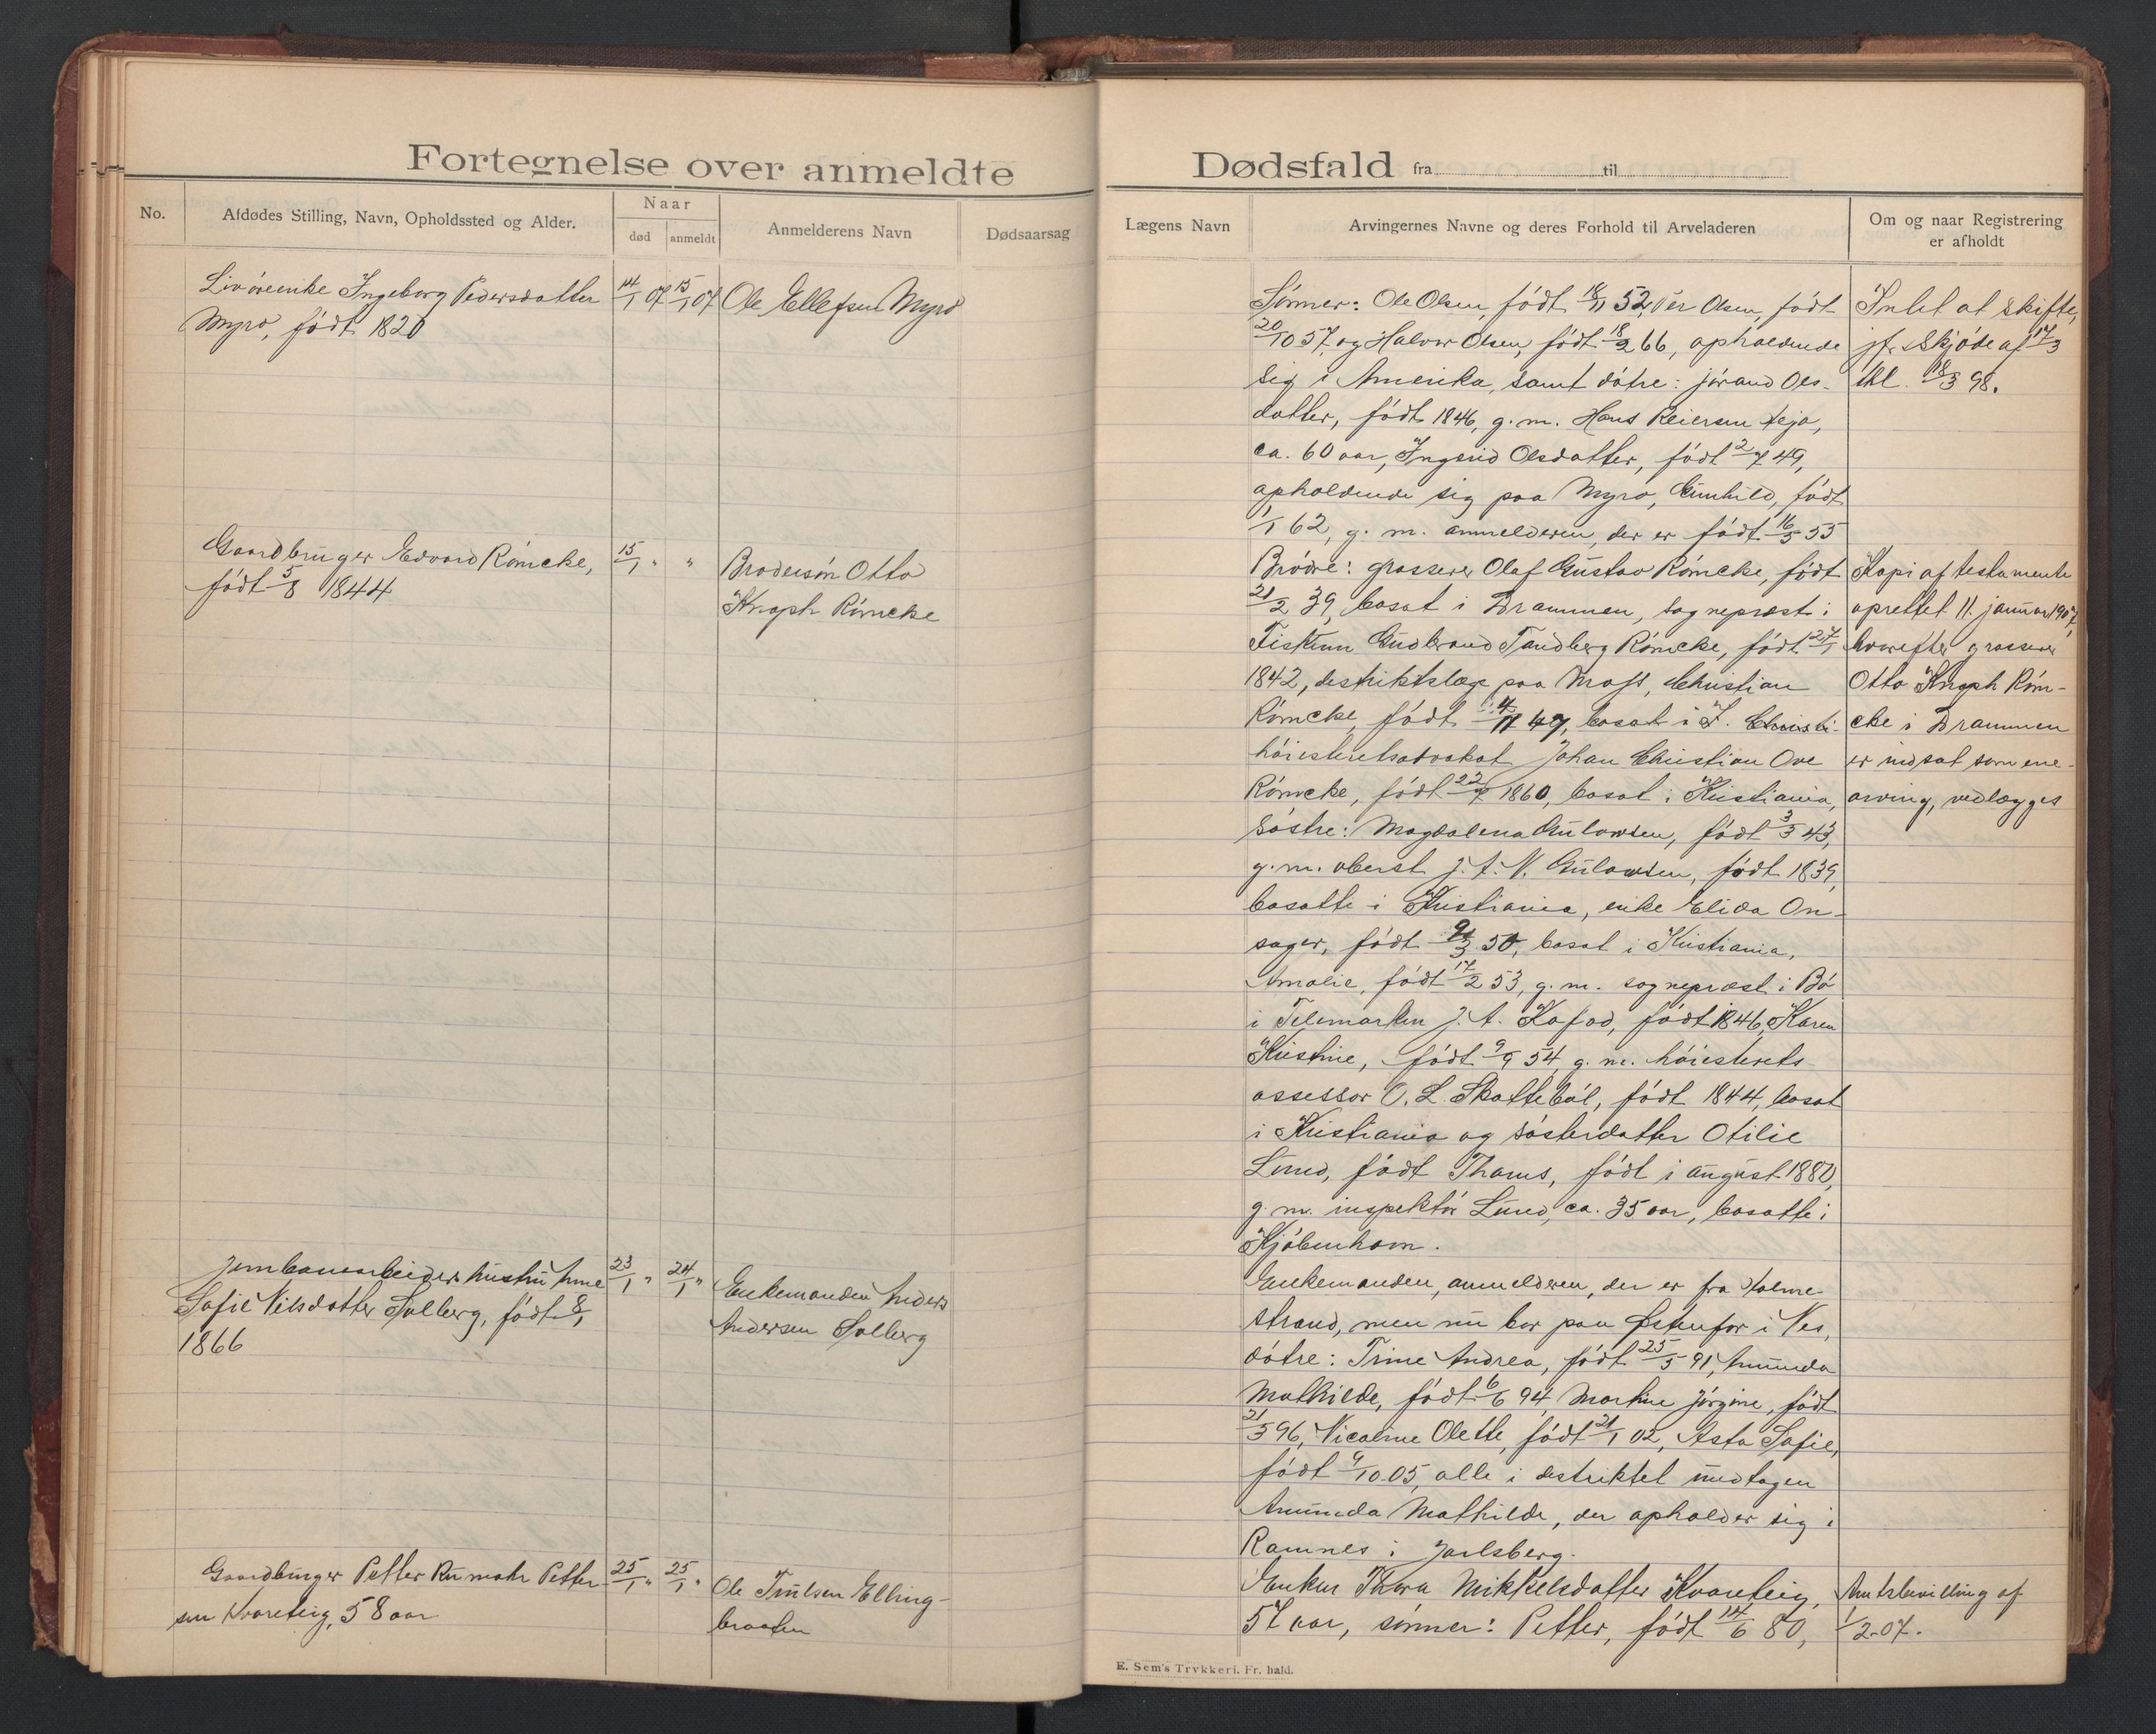 Fortegnelse over anmeldte
No.
Afdødes Stilling, Navn, Opholdssted og Alder.
Naar
død
anmeldt
Anmelderens Navn
Dødsaarsag
Ingeborg Pedersdatter
Myro, født 1820
14/1 07
15/1 07
Ole Ellefsen Myro
Gaardbruger Edvard Römcke,
født 5/8 1844
15/1 " "
Broderen Otto
Knoph Römcke
Jernbanearbeiders hustru Anne
Sofie Nilsdatter Solberg, født 8/1
1866
23/1 "
24/1 "
Enkemanden Anders
Andersen Solberg
Gaardbruger Petter Rumohr Petter-
sen Kvareteig, 58 aar
25/1 "
25/1 "
Ole Trulsen Elling-
braaten
Dødsfald fra til
Lægens Navn
Arvingernes Navne og deres Forhold til Arveladeren
Om og naar Registrering
er afholdt
Sønner: Ole Olsen, født 18/11 52, Per Olsen, født
20/10 57, og Halvor Olsen, født 18/2 66, opholdende
sig i Amerika, samt døtre: Jørand Ols-
datter, født 1846, g. m. Hans Reiersen
ca. 60 aar, Ingerid Olsdatter, født 2/7 49,
opholdende sig paa Myro, Gunhild, født
1/1 62, g. m. anmelderen, der er født 16/5 55
Intet at skifte,
jf. skjøde af 17/3
thl. 18/3 98.
Brødre: grosserer Olaf Gustav Römcke, født
21/2 39, bosat i Drammen, sogneprest i
Fiskum Gudbrand Tandberg Römcke, født 27/1
1842, destriktslæge paa Moss, Christian
Römcke, født 4/11 47, bosat i
høiesteretsadvokat Johan Christian Ove
Römcke, født 22/7 1860, bosat i Kristiania,
søstre: Magdalena Gulowsen, født 3/3 43,
g. m. oberst J. A. N. Gulowsen, født 1839,
bosatte i Kristiania, enke Elida On-
sager, født 9/3 50, bosat i Kristiania,
Amalie, født 17/2 53, g. m. sogneprest i Bø
i Telemarken J. A. født 1846, Karen
Kristine, født 9/9 54, g. m. høiesterets
assessor O. L. Skattebøl, født 1844, bosat
i Kristiania og søsterdatter Otilie
Lund, født Thams, født i august 1880,
g. m. inspektør Lund, ca. 35 aar, bosatte i
Kjøbenhavn.
Kopi af testamente
oprettet 11. januar 1907,
hvorefter grosserer
Otto Knoph Röm-
cke i Drammen
er indsat som ene-
arving, vedlægges
Enkemanden, anmelderen, der er fra Holme-
strand, men nu bor paa Østenfor i Nes,
døtre: Trine Andrea, født 25/5 91, Amunda
Mathilde, født 6/6 94 Martine Jørgine, født
21/3 96, Nicoline Olette, født 21/1 02, Asta Sofie,
født 9/10 05, alle i destriktet undtagen
Amunda Mathilde, der opholder sig i
Ramnes i Jarlsberg.
Enken Thora Mikkelsdatter Kvareteig,
57 aar, sønner: Petter, født 14/6 80,
Amtsbevilling af
1/2 07.
E. Sem's Trykkeri. Fr. hald.